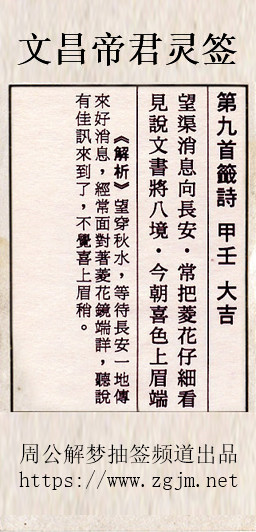 文昌帝君灵签
第九首籤詩 甲壬 大吉
望渠消息向長安・常把菱花仔細看
見說文書將八境・今朝喜色上眉端
《解析》望穿秋水，等待長安一地傳
來好消息，經常面對著菱花鏡端詳，聽說
有佳訊來到了，不覺喜上眉稍。
周公解梦抽签频道出品
https://www.zgjm.net